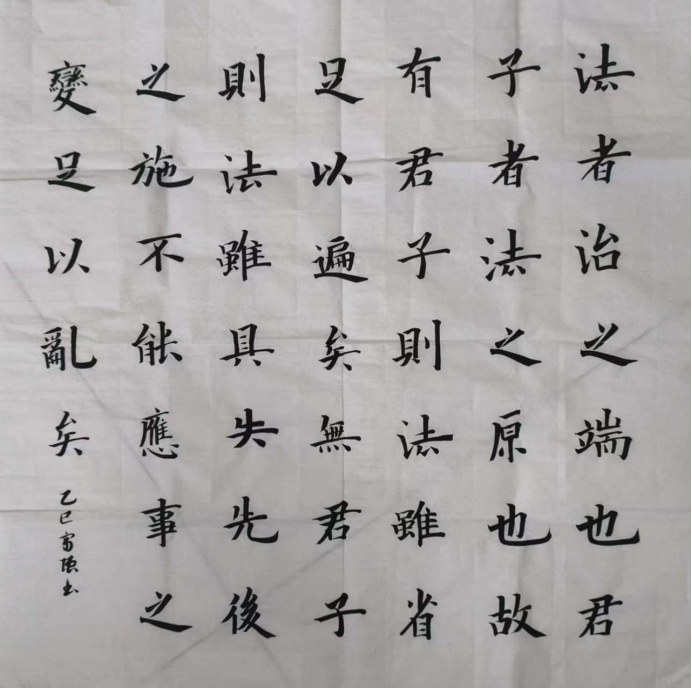 法者治之端也君
子者法之原也故
有君子則法雖省
足以遍矣無君子
則法雖具失先後
之施不能應事之
變足以亂矣
乙巳富強書